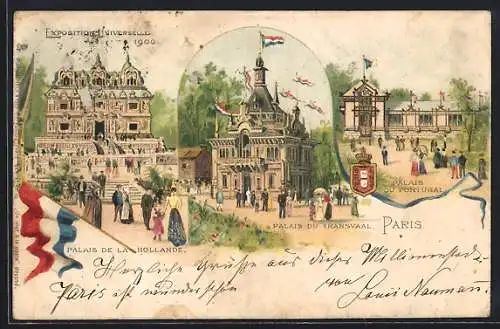 EXPOSITION UNIVERSELLE
1900
PALAIS DU PORTUGAL
PALAIS DU TRANSVAAL
PARIS
PALAIS DE LA HOLLANDE.
Herzliche Grüße aus dieser Millionenstadt.
Paris ist wunderschön
von Louis Naumann.